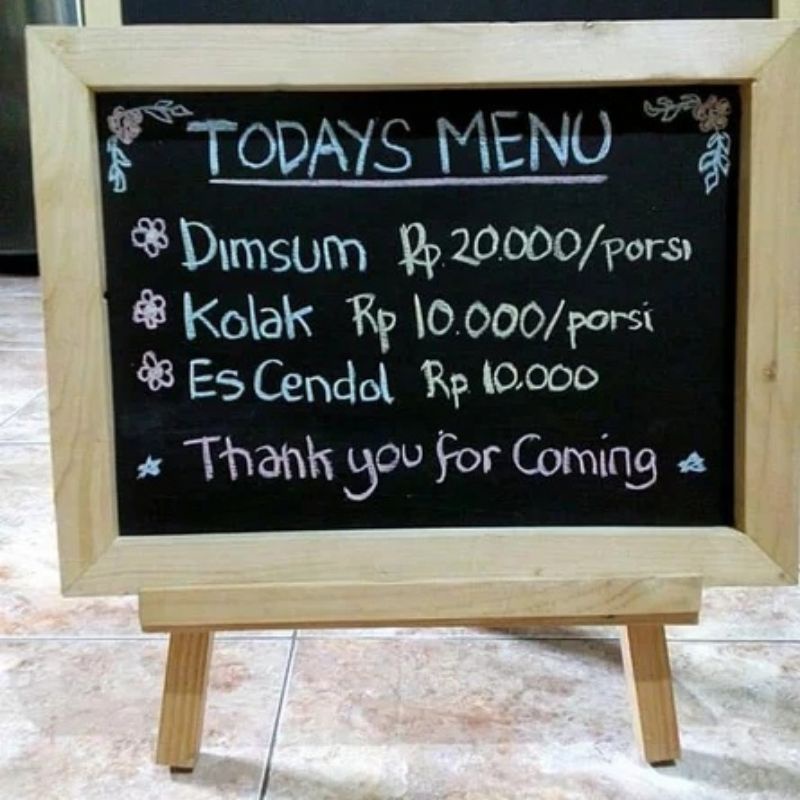 TODAY'S MENU
Dimsum Rp. 20.000/porsi
Kolak Rp 10.000/porsi
Es Cendol Rp. 10.000
Thank you for Coming